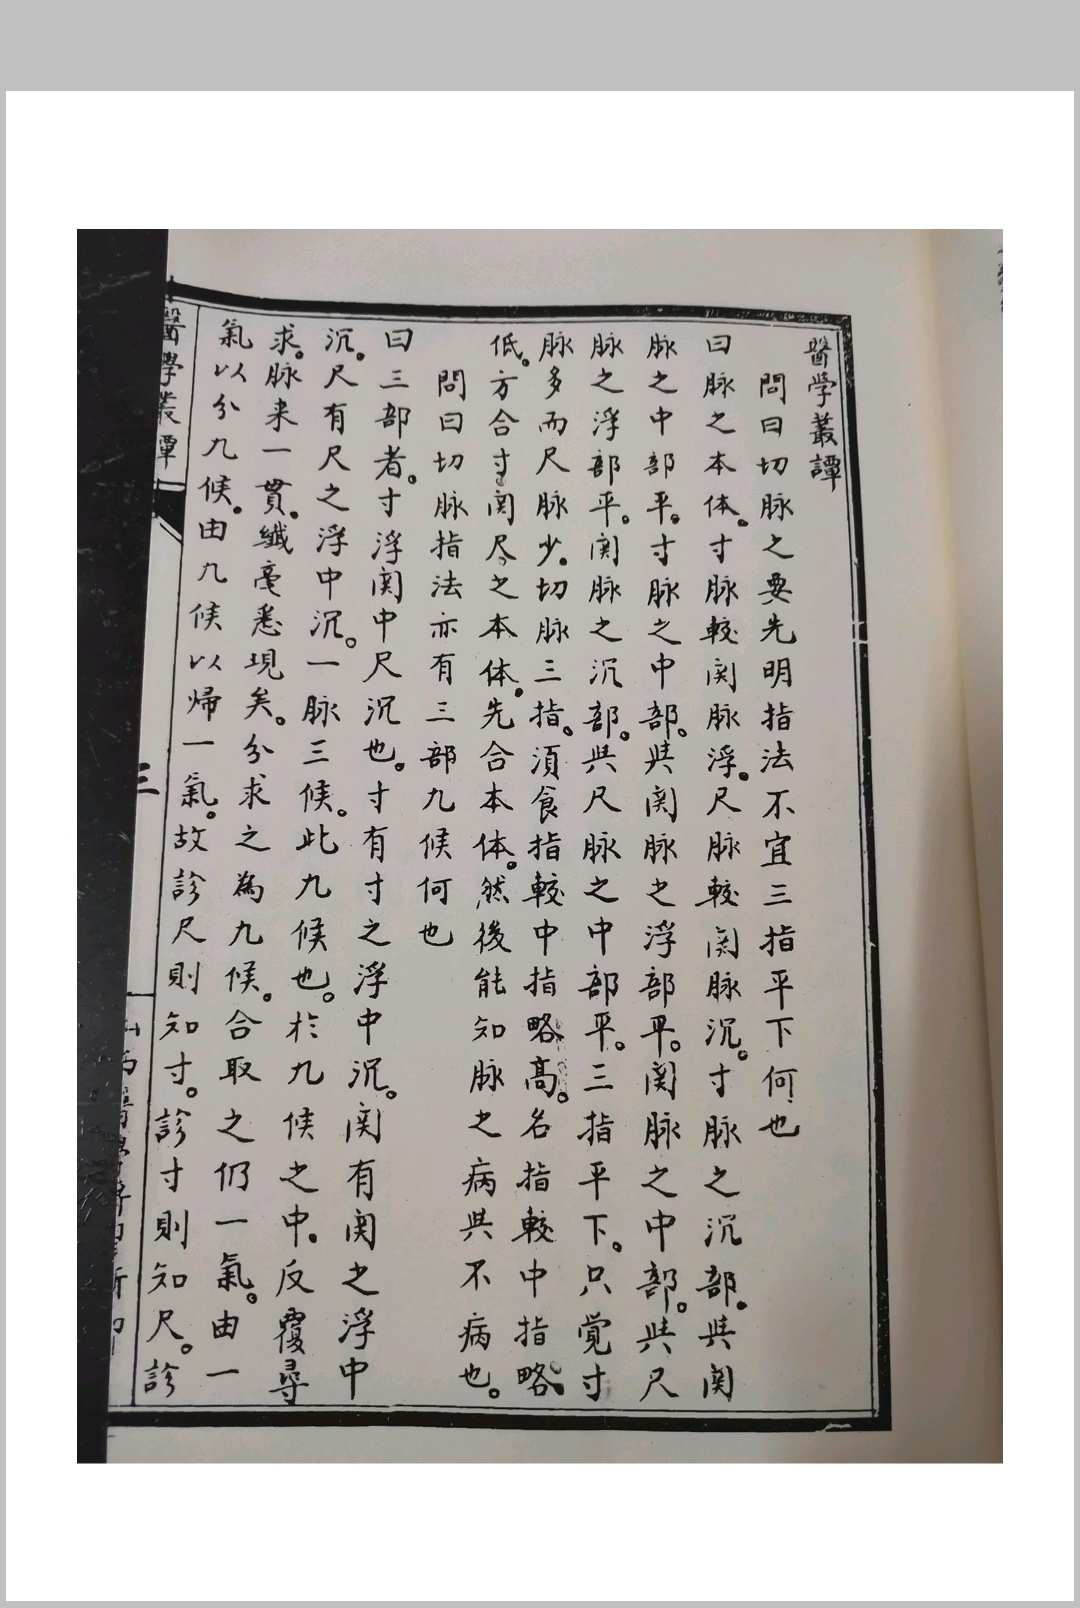 醫学叢譚
問曰切脉之要先明指法不宜三指平下何也
曰脉之本体。寸脉較関脉浮。尺脉較関脉沉。寸脉之沉部。与関
脉之中部平。寸脉之中部。与関脉之浮部平。関脉之中部。与尺
脉之浮部平。関脉之沉部。与尺脉之中部平。三指平下。只覚寸
脉多而尺脉少。切脉三指。須食指較中指略高。名指較中指略
低。方合寸関尺之本体。先合本体。然後能知脉之病与不病也。
問曰切脉指法亦有三部九候何也
曰三部者。寸浮関中尺沉也。寸有寸之浮中沉。関有関之浮中
沉。尺有尺之浮中沉。一脉三候。此九候也。於九候之中。反覆尋
求。脉来一貫。纖毫悉現矣。分求之為九候。合取之仍一氣。由一
氣以分九候。由九候以帰一氣。故診尺則知寸。診寸則知尺。診
醫學叢譚
三